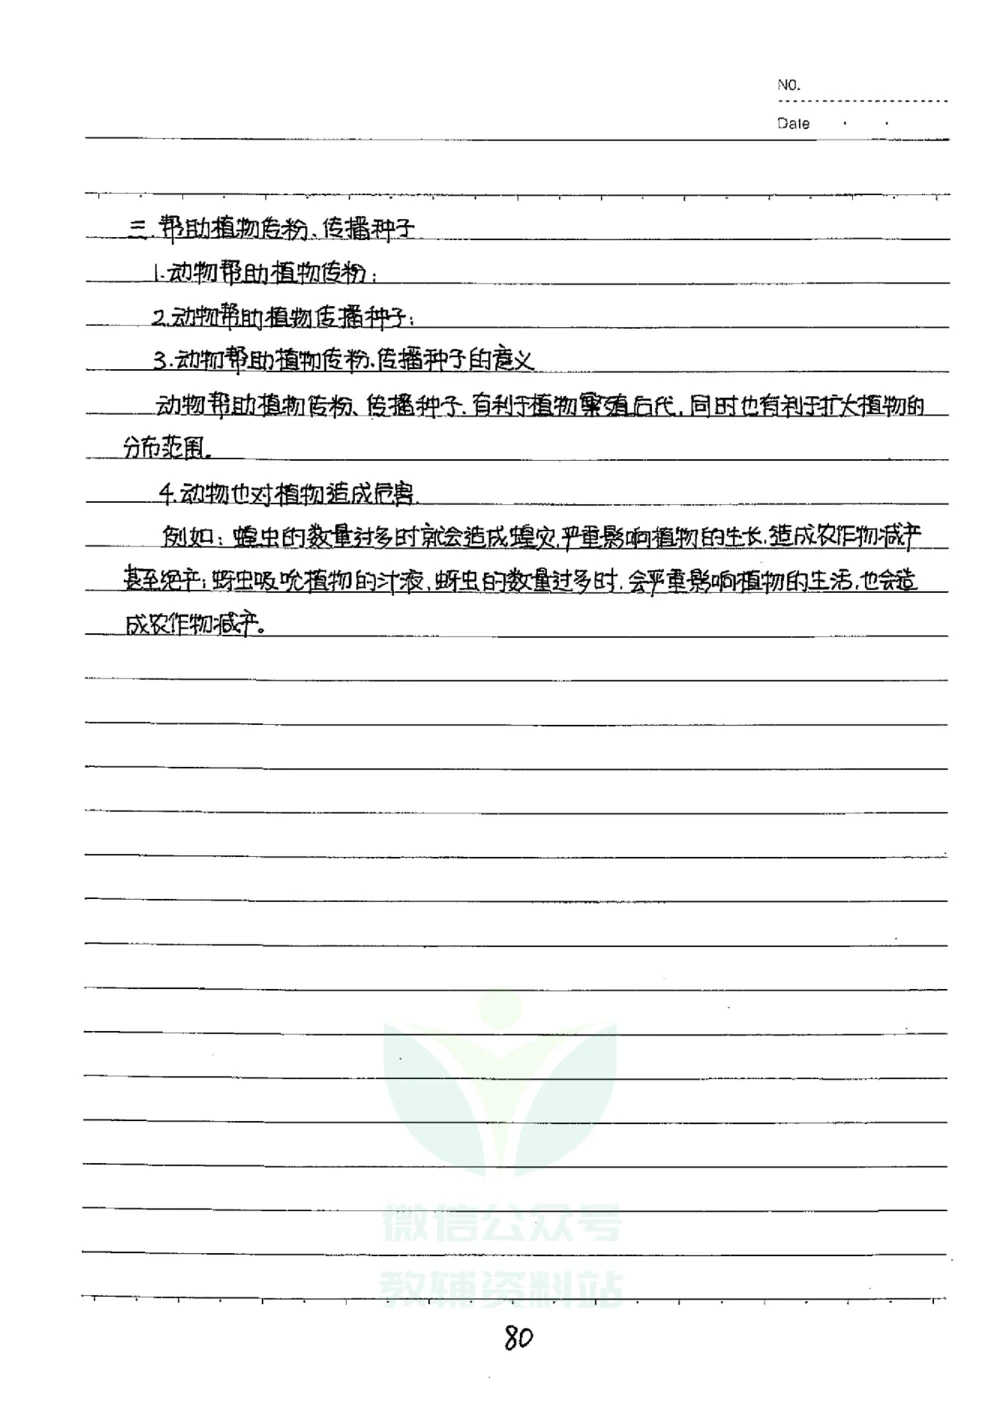 NO.
Date
三.帮助植物传粉、传播种子
1.动物帮助植物传粉;
2.动物帮助植物传播种子;
3.动物帮助植物传粉、传播种子的意义
动物帮助植物传粉、传播种子,有利于植物繁殖后代,同时也有利于扩大植物的
分布范围。
4.动物也对植物造成危害.
例如:蝗虫的数量过多时就会造成蝗灾,严重影响植物的生长,造成农作物减产
甚至绝产;蚜虫吸吮植物的汁液,蚜虫的数量过多时,会严重影响植物的生活,也会造
成农作物减产。
微信公众号
教辅资料站
80